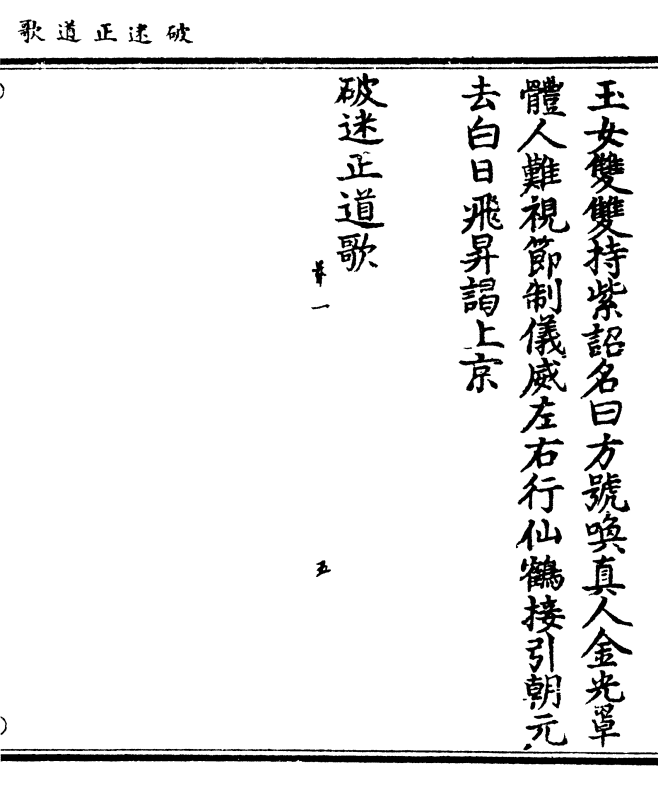 破迷正道歌
玉女雙雙持紫詔名曰方號喚真人金光罩
體人難視節制儀威左右行仙鶴接引朝元
去白日飛昇謁上京
破迷正道歌
第一
五